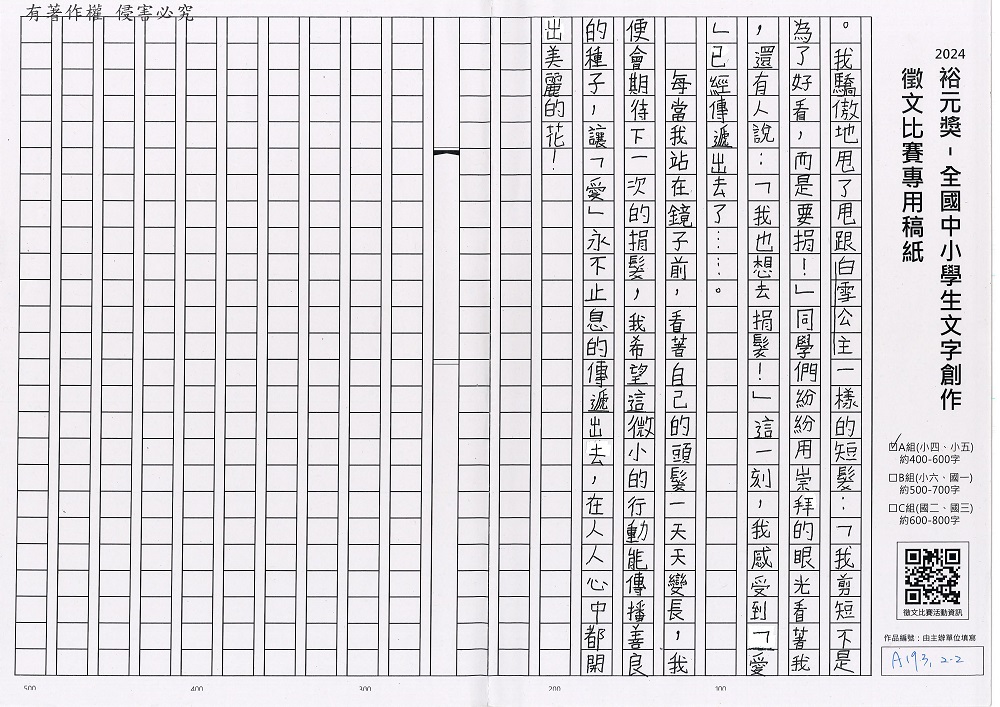 有著作權 侵害必究
2024
裕元獎-全國中小學生文字創作
徵文比賽專用稿紙
☑A組(小四、小五)
約400-600字
□B組(小六、國一)
約500-700字
□C組(國二、國三)
約600-800字
徵文比賽活動資訊
作品編號：由主辦單位填寫
A193, 2-2
。我驕傲地甩了甩跟白雪公主一樣的短髮：「我剪短不是
為了好看，而是要捐！」同學們紛紛用崇拜的眼光看著我
，還有人說：「我也想去捐髮！」這一刻，我感受到「愛
」已經傳遞出去了……。
每當我站在鏡子前，看著自己的頭髮一天天變長，我
便會期待下一次的捐髮，我希望這微小的行動能傳播善良
的種子，讓「愛」永不止息的傳遞出去，在人人心中都開
出美麗的花！
100
200
300
400
500